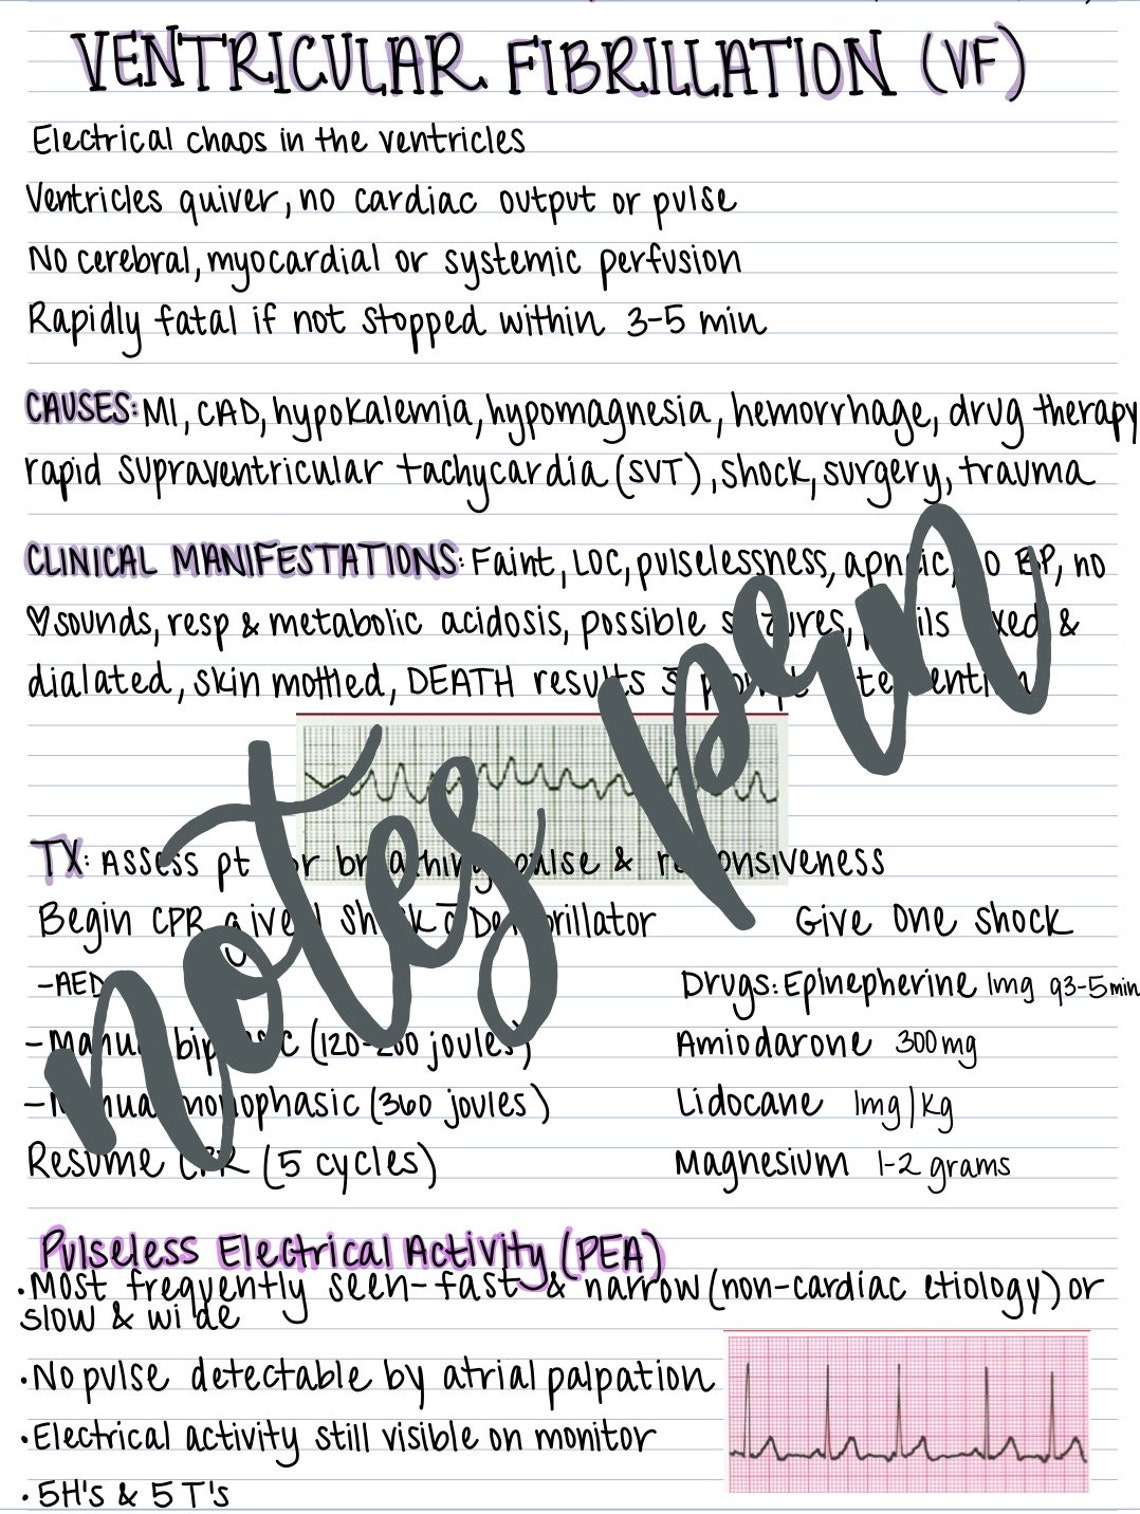 VENTRICULAR FIBRILLATION (VF)
Electrical chaos in the ventricles
Ventricles quiver, no cardiac output or pulse
No cerebral, myocardial or systemic perfusion
Rapidly fatal if not stopped within 3-5 min
CAUSES: MI, CAD, hypokalemia, hypomagnesia, hemorrhage, drug therapy
rapid supraventricular tachycardia (SVT), shock, surgery, trauma
CLINICAL MANIFESTATIONS: Faint, LOC, pulselessness, apneic, no BP, no
♡ sounds, resp & metabolic acidosis, possible seizures, pupils fixed &
dialated, skin mottled, DEATH results s̄ prompt intervention
TX: Assess pt for breathing, pulse & responsiveness
Begin CPR give 1 shock c̄ Defibrillator
Give one shock
-AED
Drugs: Epinepherine 1mg q3-5min
-Manual biphasic (120-200 joules)
Amiodarone 300mg
-Manual monophasic (360 joules)
Lidocane 1mg/kg
Resume CPR (5 cycles)
Magnesium 1-2 grams
notes pen
Pulseless Electrical Activity (PEA)
• Most frequently seen- fast & narrow (non-cardiac etiology) or
slow & wide
• No pulse detectable by atrial palpation
• Electrical activity still visible on monitor
• 5H's & 5T's